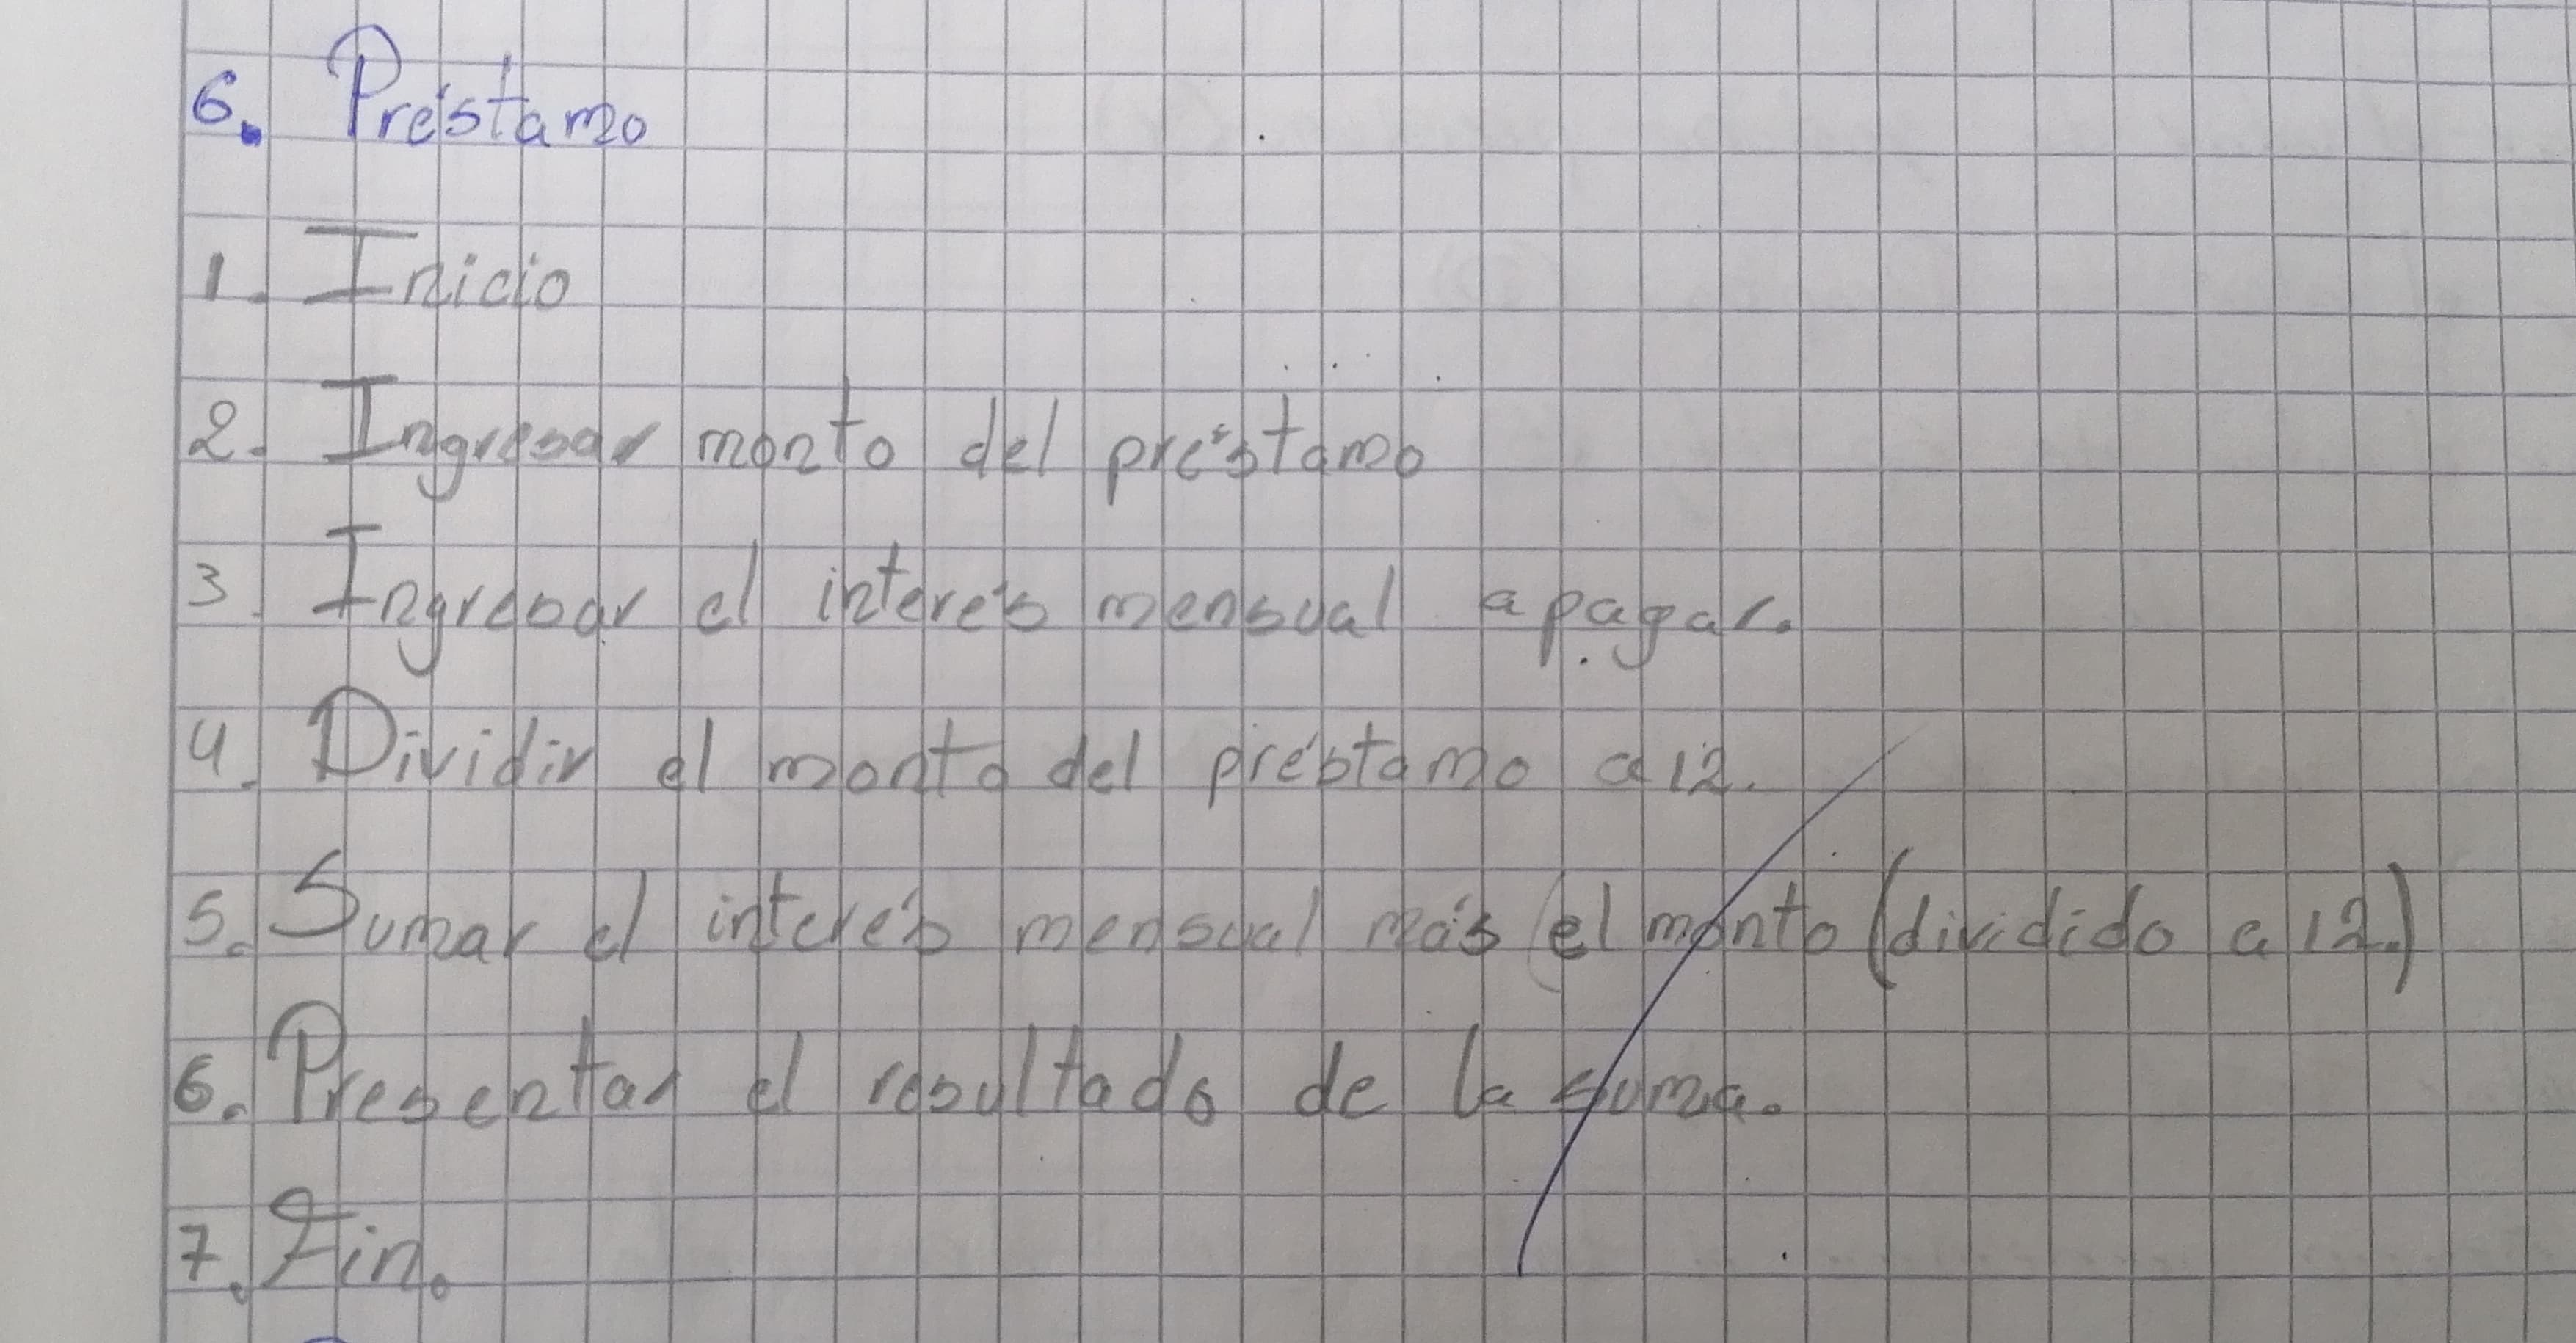 6. Préstamo
1. Inicio
2. Ingresar monto del préstamo
3. Ingresar el interés mensual a pagar.
4. Dividir el monto del préstamo a 12.
5. Sumar el interés mensual más el monto (dividido a 12.)
6. Presentar el resultado de la suma.
7. Fin.